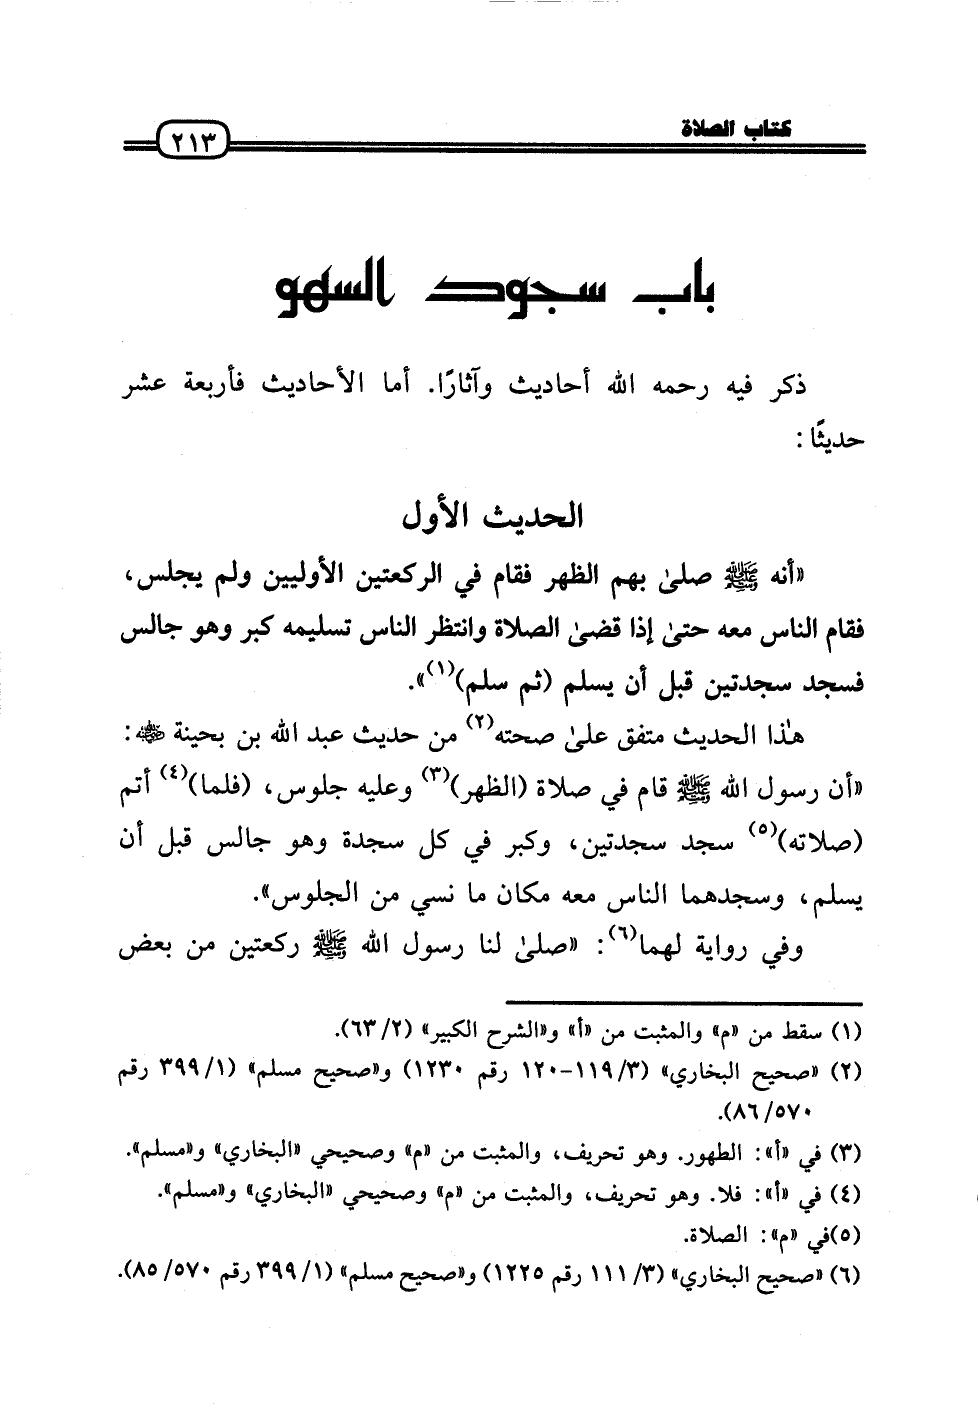 كتاب الصلاة
٢١٣
باب سجود السهو
ذكر فيه رحمه الله أحاديث وآثارًا. أما الأحاديث فأربعة عشر
حديثًا:
الحديث الأول
«أنه ﷺ صلىٰ بهم الظهر فقام في الركعتين الأوليين ولم يجلس،
فقام الناس معه حتىٰ إذا قضىٰ الصلاة وانتظر الناس تسليمه كبر وهو جالس
فسجد سجدتين قبل أن يسلم (ثم سلم)(١)».
هٰذا الحديث متفق علىٰ صحته(٢) من حديث عبد الله بن بحينة رضي الله عنه:
«أن رسول الله ﷺ قام في صلاة (الظهر)(٣) وعليه جلوس، (فلما)(٤) أتم
(صلاته)(٥) سجد سجدتين، وكبر في كل سجدة وهو جالس قبل أن
يسلم، وسجدهما الناس معه مكان ما نسي من الجلوس».
وفي رواية لهما(٦): «صلىٰ لنا رسول الله ﷺ ركعتين من بعض
(١) سقط من «م» والمثبت من «أ» و«الشرح الكبير» (٢/ ٦٣).
(٢) «صحيح البخاري» (٣/ ١١٩-١٢٠ رقم ١٢٣٠) و«صحيح مسلم» (١/ ٣٩٩ رقم
٥٧٠/ ٨٦).
(٣) في «أ»: الطهور. وهو تحريف، والمثبت من «م» وصحيحي «البخاري» و«مسلم».
(٤) في «أ»: فلا. وهو تحريف، والمثبت من «م» وصحيحي «البخاري» و«مسلم».
(٥)في «م»: الصلاة.
(٦) «صحيح البخاري» (٣/ ١١١ رقم ١٢٢٥) و«صحيح مسلم» (١/ ٣٩٩ رقم ٥٧٠/ ٨٥).